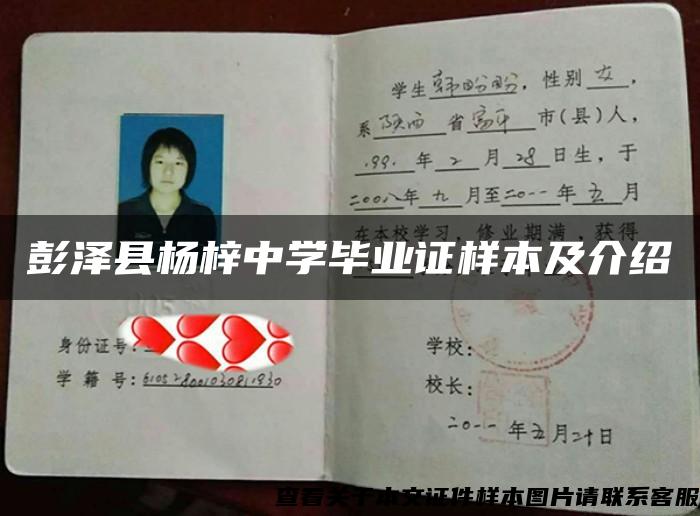 学生 韩盼盼，性别 女，
系 陕西 省 富平 市(县)人，
199. 年 2 月 28 日生，于
二00八年 九 月至二0一一 年 五 月
在本校学习，修业期满，获得
彭泽县杨梓中学毕业证样本及介绍
身份证号:
学 籍 号: 610528001030811930
学校:
校长:
二0一一 年五月二十日
查看关于本文证件样本图片请联系客服